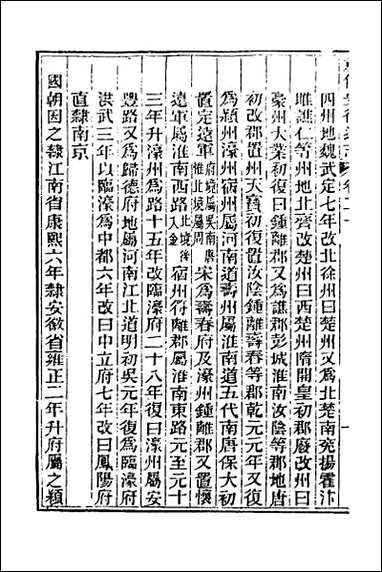 四州地魏武定七年改北徐州曰楚州又為北楚南兗揚霍汴
雎譙仁等州地北齊改楚州曰西楚州隋開皇初郡廢改州曰
豪州大業初復曰鍾離郡又為譙郡彭城淮南汝陰等郡地唐
初改郡置州天寶初復置汝陰鍾離壽春等郡乾元元年又復
為潁州濠州宿州屬河南道壽州屬淮南道五代南唐保大初
置定遠軍府境屬吳南唐惟北境屬周宋為壽春府及濠州鍾離郡又置懷
遠軍屬淮南西路北境後入金宿州符離郡屬淮南東路元至元十
三年升濠州為路十五年改臨濠府二十八年復曰濠州屬安
豐路又為歸德府地屬河南江北道明初吳元年復為臨濠府
洪武三年以臨濠為中都六年改曰中立府七年改曰鳳陽府
直隸南京
國朝因之隸江南省康熙六年隸安徽省雍正二年升府屬之潁